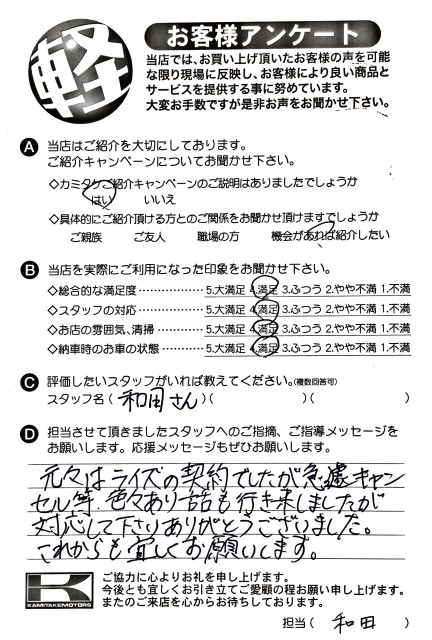 軽
お客様アンケート
当店では、お買い上げ頂いたお客様の声を可能
な限り現場に反映し、お客様により良い商品と
サービスを提供する事に努めています。
大変お手数ですが是非お声をお聞かせ下さい。
A 当店はご紹介を大切にしております。
ご紹介キャンペーンについてお聞かせ下さい。
◇カミタケご紹介キャンペーンのご説明はありましたでしょうか
はい いいえ
◇具体的にご紹介頂ける方とのご関係をお聞かせ頂けますでしょうか
ご親族 ご友人 職場の方 機会があれば紹介したい
B 当店を実際にご利用になった印象をお聞かせ下さい。
◇総合的な満足度 ‥‥‥‥‥‥ 5.大満足 4.満足 3.ふつう 2.やや不満 1.不満
◇スタッフの対応 ‥‥‥‥‥‥ 5.大満足 4.満足 3.ふつう 2.やや不満 1.不満
◇お店の雰囲気、清掃 ‥‥‥‥ 5.大満足 4.満足 3.ふつう 2.やや不満 1.不満
◇納車時のお車の状態 ‥‥‥‥ 5.大満足 4.満足 3.ふつう 2.やや不満 1.不満
C 評価したいスタッフがいれば教えてください。(複数回答可)
スタッフ名 ( 和田さん )( )( )
D 担当させて頂きましたスタッフへのご指摘、ご指導メッセージを
お願いします。応援メッセージもぜひお願いします。
元々はライズの契約でしたが急遽キャン
セル等、色々あり話も行き来しましたが
対応して下さりありがとうございました。
これからも宜しくお願いします。
K
KAMITAKEMOTORS
ご協力に心よりお礼を申し上げます。
今後とも宜しくお引き立てご愛顧の程お願い申し上げます。
またのご来店を心からお待ちしております。
担当 ( 和田 )